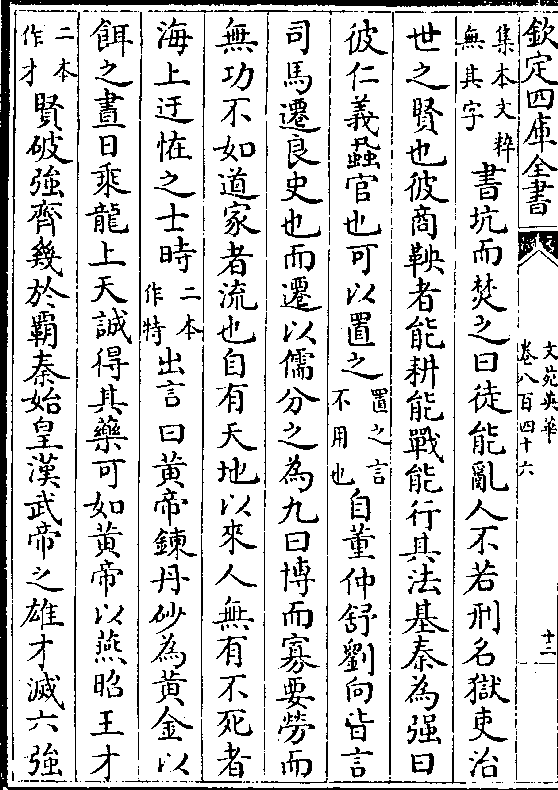 欽定四庫全書
文苑英華
卷八百四十六
十二
集本文粹無其字書坑而焚之曰徒能亂人不若刑名獄吏治
世之賢也彼商鞅者能耕能戰能行其法基秦為强曰
彼仁義蝨官也可以置之置之言不用也自董仲舒劉向皆言
司馬遷良史也而遷以儒分之為九曰博而寡要勞而
無功不如道家者流也自有天地以來人無有不死者
海上迂恠之士時二本作特出言曰黄帝鍊丹砂為黄金以
餌之晝日乘龍上天誠得其藥可如黄帝以燕昭王才
二本作才賢破強齊幾於霸秦始皇漢武帝之雄才滅六強